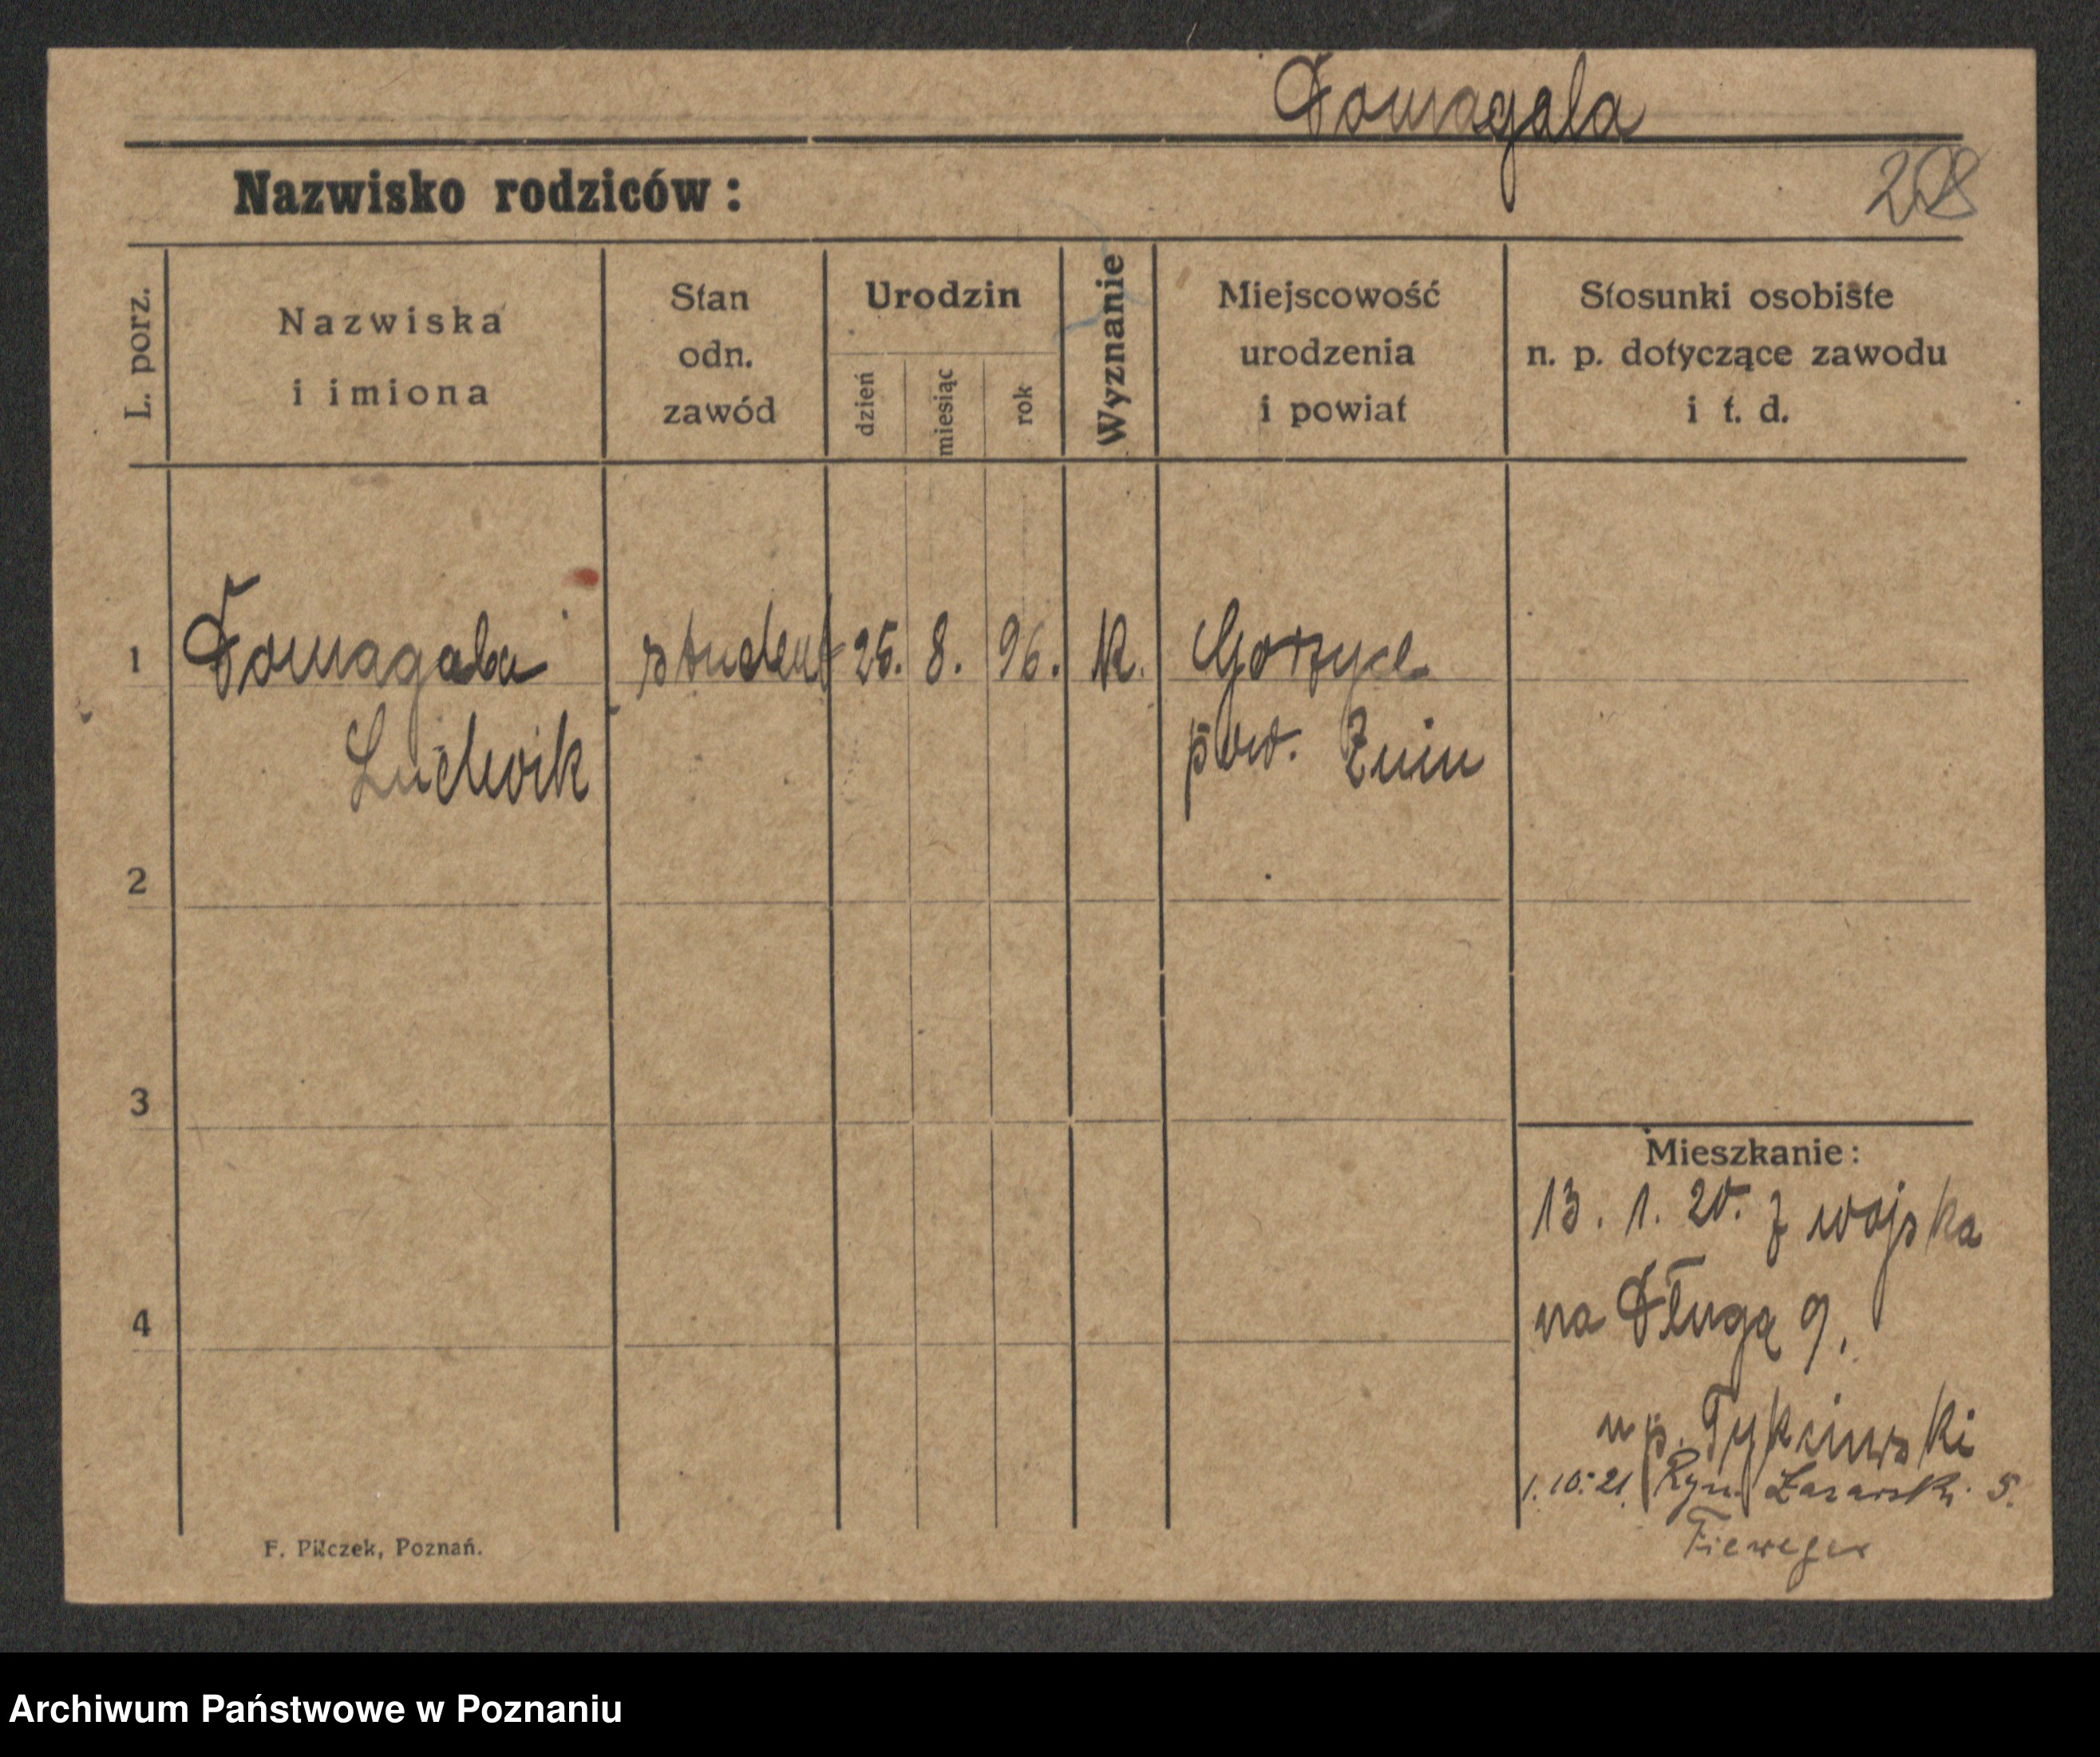 Domagala
208
Nazwisko rodziców:
L. porz.
Nazwiska
i imiona
Stan
odn.
zawód
Urodzin
dzień
miesiąc
rok
Wyznanie
Miejscowość
urodzenia
i powiat
Stosunki osobiste
n. p. dotyczące zawodu
i t. d.
1 Domagala student 25. 8. 96. K. Gorzyce
Ludwik pow. Znin
2
3
4
Mieszkanie:
13. 1. 20. z wojska
na Długą 9.
u p.
1.10.21. Ryn. Łazarski 5.
F. Pilczek, Poznań.
Archiwum Państwowe w Poznaniu